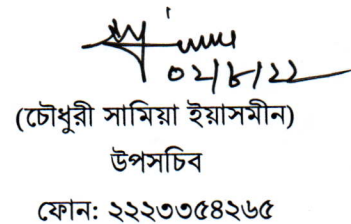 ০২/৮/২২
(চৌধুরী সামিয়া ইয়াসমীন)
উপসচিব
ফোন: ২২২৩৩৫৪২৬৫